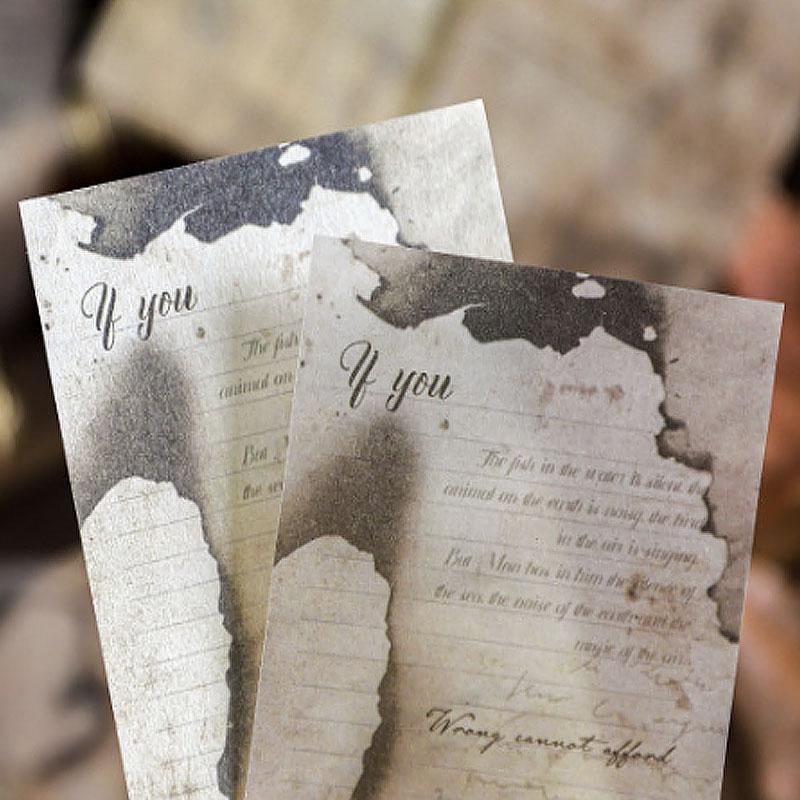 If you
The fish
animal on
But
the sea
If you
The fish in the water is silent, the
animal on the earth is noisy, the bird
in the air is singing.
But Man has in him the silence of
the sea, the noise of the earth and the
music of the air.
Wrong cannot afford